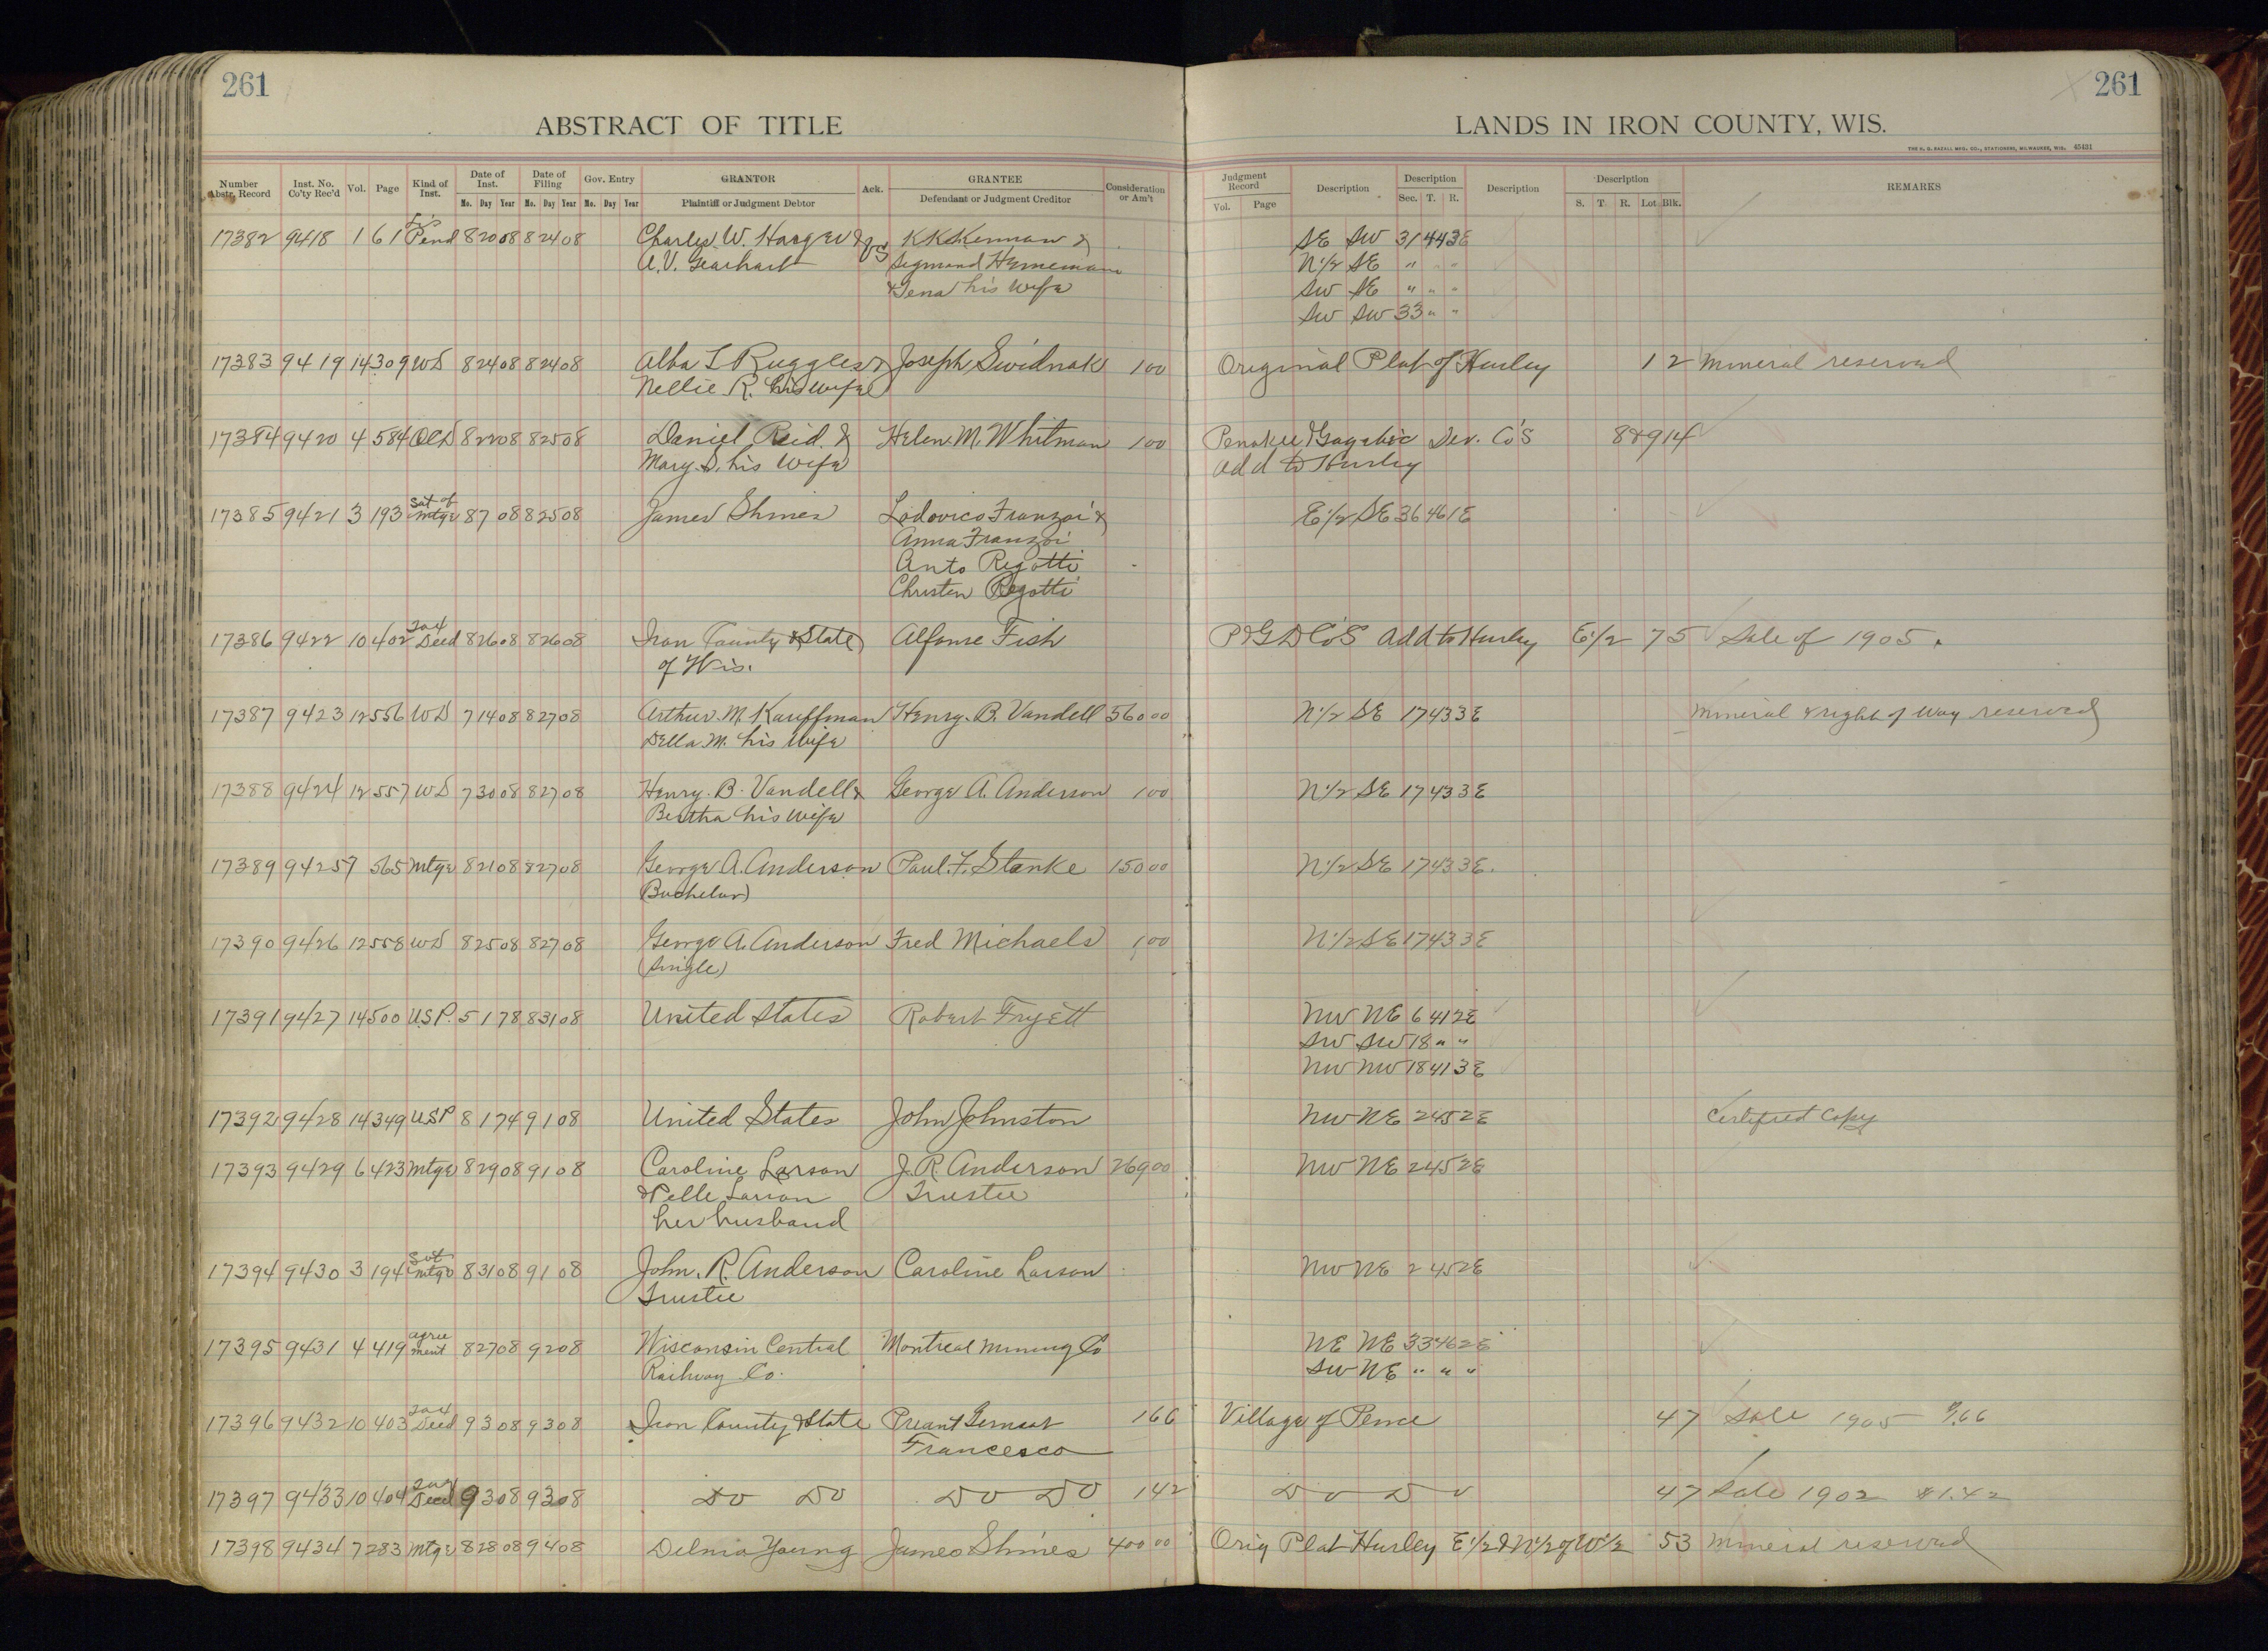 261
261
ABSTRACT OF TITLE
LANDS IN IRON COUNTY, WIS.
THE H. G. RAZALL MFG. CO., STATIONERS, MILWAUKEE, WIS. 45431
Number Abstr. Record Inst. No. Co'ty Rec'd Vol. Page Kind of Inst. Date of Inst. Date of Filing Gov. Entry GRANTOR Ack. GRANTEE Consideration or Am't Judgment Record Description Description Description Description REMARKS
Mo. Day Year Mo. Day Year Mo. Day Year Plaintiff or Judgment Debtor Defendant or Judgment Creditor Vol. Page Sec. T. R. S. T. R. Lot Blk.
17382 9418 1 61 Lis Pend 8 20 08 8 24 08 Charles W. Hoager & vs K K Kennan & SE SW 31 44 3E
A.V. Gearhart Sigmund Heineman N 1/2 SE " " "
& Tena his wife SW SE " " "
SW SW 33 " "
17383 9419 14 309 WD 8 24 08 8 24 08 Alba L Ruggles & Joseph Swidnak 1 00 Original Plat of Hurley 1 2 Mineral reserved
Nellie R. his wife
17384 9420 4 584 QCD 8 22 08 8 25 08 Daniel Reid & Helen M. Whitman 1 00 Penokee & Gogebic Dev. Co's 8 & 9 14
Mary S. his wife add to Hurley
17385 9421 3 193 Sat of Mtge 8 7 08 8 25 08 James Shines Lodovico Franzoi & E 1/2 SE 36 46 1E
Anna Franzoi
Anto Rigotti
Christen Rigotti
17386 9422 10 402 Tax Deed 8 26 08 8 26 08 Iron County & State Alfonse Fish P & G D Co's add to Hurley E 1/2 7 5 Sale of 1905.
of Wis.
17387 9423 12 556 WD 7 14 08 8 27 08 Arthur M. Kauffman Henry B. Vandell 560 00 N 1/2 SE 17 43 3E Mineral & right of Way reserved
Della M. his wife
17388 9424 12 557 WD 7 30 08 8 27 08 Henry B. Vandell & George A. Anderson 1 00 N 1/2 SE 17 43 3E
Bertha his wife
17389 9425 7 565 Mtge 8 21 08 8 27 08 George A. Anderson Paul F. Stanke 150 00 N 1/2 SE 17 43 3E.
(Bachelor)
17390 9426 12 558 WD 8 25 08 8 27 08 George A. Anderson Fred Michaels 1 00 N 1/2 SE 17 43 3E
(Single)
17391 9427 14 500 U.S.P. 5 1 78 8 31 08 United States Robert Fryett NW NE 6 41 2E
SW SW 18 " "
NW NW 18 41 3E
17392 9428 14 349 USP 8 1 74 9 1 08 United States John Johnston NW NE 2 45 2E Certified Copy
17393 9429 6 423 Mtge 8 29 08 9 1 08 Caroline Larson J. R. Anderson 269 00 NW NE 2 45 2E
& Pelle Larson Trustee
her husband
17394 9430 3 194 Sat Mtge 8 31 08 9 1 08 John. R. Anderson Caroline Larson NW NE 2 45 2E
Trustee
17395 9431 4 419 agreement 8 27 08 9 2 08 Wisconsin Central Montreal Mining Co NE NE 33 46 2E
Railway Co. SW NE " " "
17396 9432 10 403 Tax Deed 9 3 08 9 3 08 Iron County & State 1 66 Village of Pence 4 7 Sale 1905
Francesco
17397 9433 10 404 Tax Deed 9 3 08 9 3 08 Do Do Do Do 1 42 Do Do 4 7 Sale 1902 $1.42
17398 9434 7 283 Mtge 8 28 08 9 4 08 Delmia Young James Shines 400 00 Orig Plat Hurley E 1/2 & N 1/2 of W 1/2 5 3 Mineral reserved